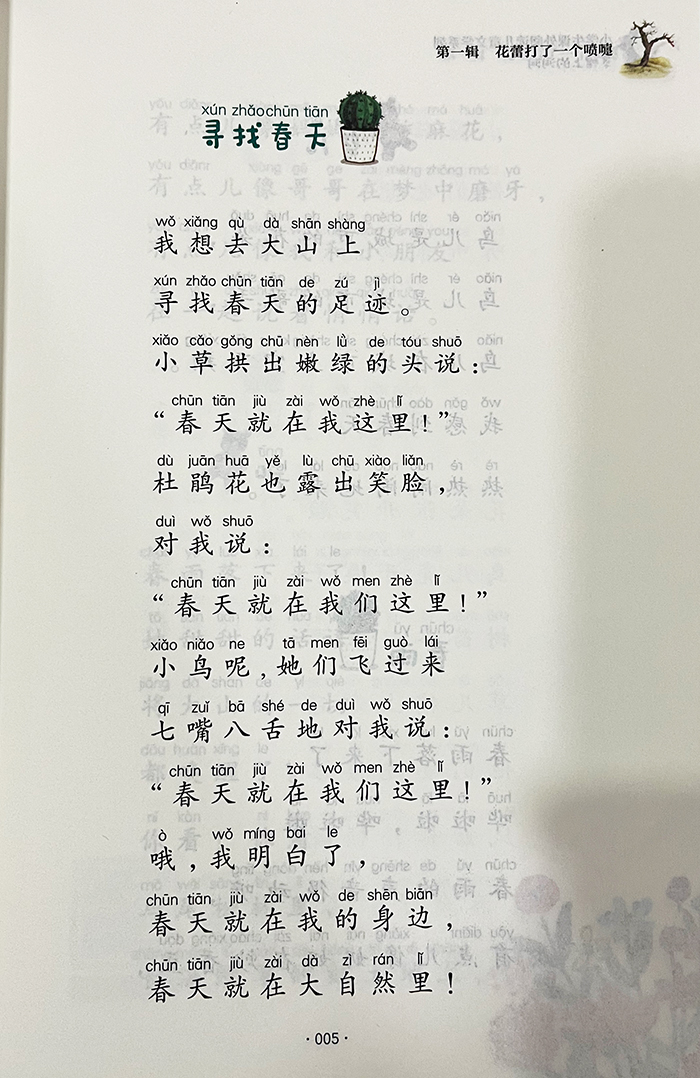 第一辑 花蕾打了一个喷嚏
xún zhǎo chūn tiān
寻找春天
wǒ xiǎng qù dà shān shàng
我想去大山上
xún zhǎo chūn tiān de zú jì
寻找春天的足迹。
xiǎo cǎo gǒng chū nèn lǜ de tóu shuō
小草拱出嫩绿的头说：
chūn tiān jiù zài wǒ zhè lǐ
“春天就在我这里！”
dù juān huā yě lù chū xiào liǎn
杜鹃花也露出笑脸，
duì wǒ shuō
对我说：
chūn tiān jiù zài wǒ men zhè lǐ
“春天就在我们这里！”
xiǎo niǎo ne tā men fēi guò lái
小鸟呢，她们飞过来
qī zuǐ bā shé de duì wǒ shuō
七嘴八舌地对我说：
chūn tiān jiù zài wǒ men zhè lǐ
“春天就在我们这里！”
ò wǒ míng bai le
哦，我明白了，
chūn tiān jiù zài wǒ de shēn biān
春天就在我的身边，
chūn tiān jiù zài dà zì rán lǐ
春天就在大自然里！
·005·